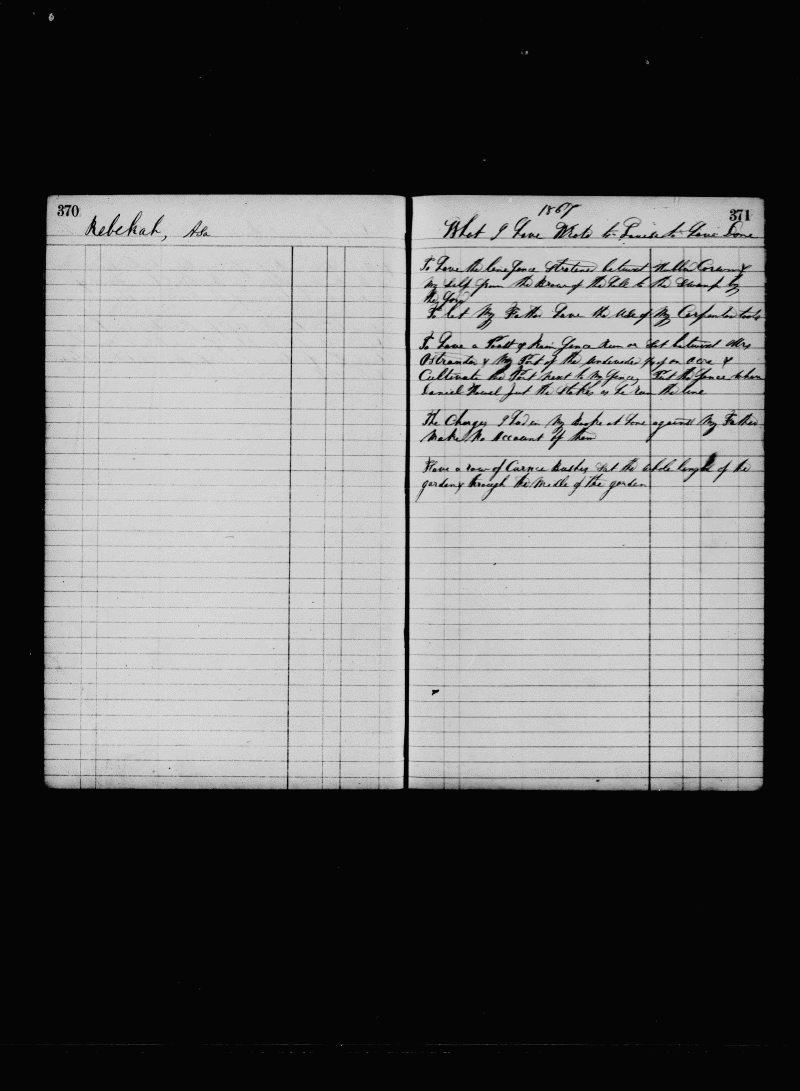 370
Rebekah, Asa
1867
371
What I have Wrote to Louise to have Done
To have the line fence Stratened between Hubbel Corwin &
My Self from the Brow of the hill to the Swamp by
the
To let My Father have the Use of My Carpenter tools
To have a Post & Rail fence Run or Set between Mrs
Ostrander & My Part of the up on &
Cultivate the Part next to My fence Put the fence where
Daniel Howel Put the Stakes as he ran the line
The Charges I had on My Books at home against My Father
Make No Account of them
Have a row of Currnce bushes Set the whole length of the
garden & through the Midle of the garden